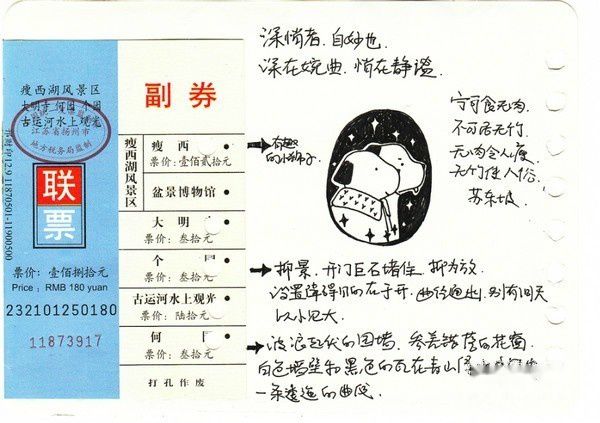 瘦西湖风景区
大明寺 何园 个园
古运河水上观光
江苏省扬州市
地方税务局监制
联票
票价：壹佰捌拾元
Price：RMB 180 yuan
232101250180
11873917
副券
瘦西湖风景区
瘦 西
票价：壹佰贰拾元
盆景博物馆
大 明
票价：叁拾元
个
票价：叁拾元
古运河水上观光
票价：陆拾元
何
票价：叁拾元
打孔作废
深悄者，自妙也
深在婉曲，悄在静谧
有趣
的小狮子
宁可食无肉，
不可居无竹，
无肉令人瘦
无竹使人俗
苏东坡
抑景，开门巨石堵住，抑为放
设置障碍目的在于开，曲径通幽，别有洞天
以小见大
波浪起伏的围墙，参差错落的花窗
白色墙壁和黑色的瓦在青山
一条逶迤的曲线